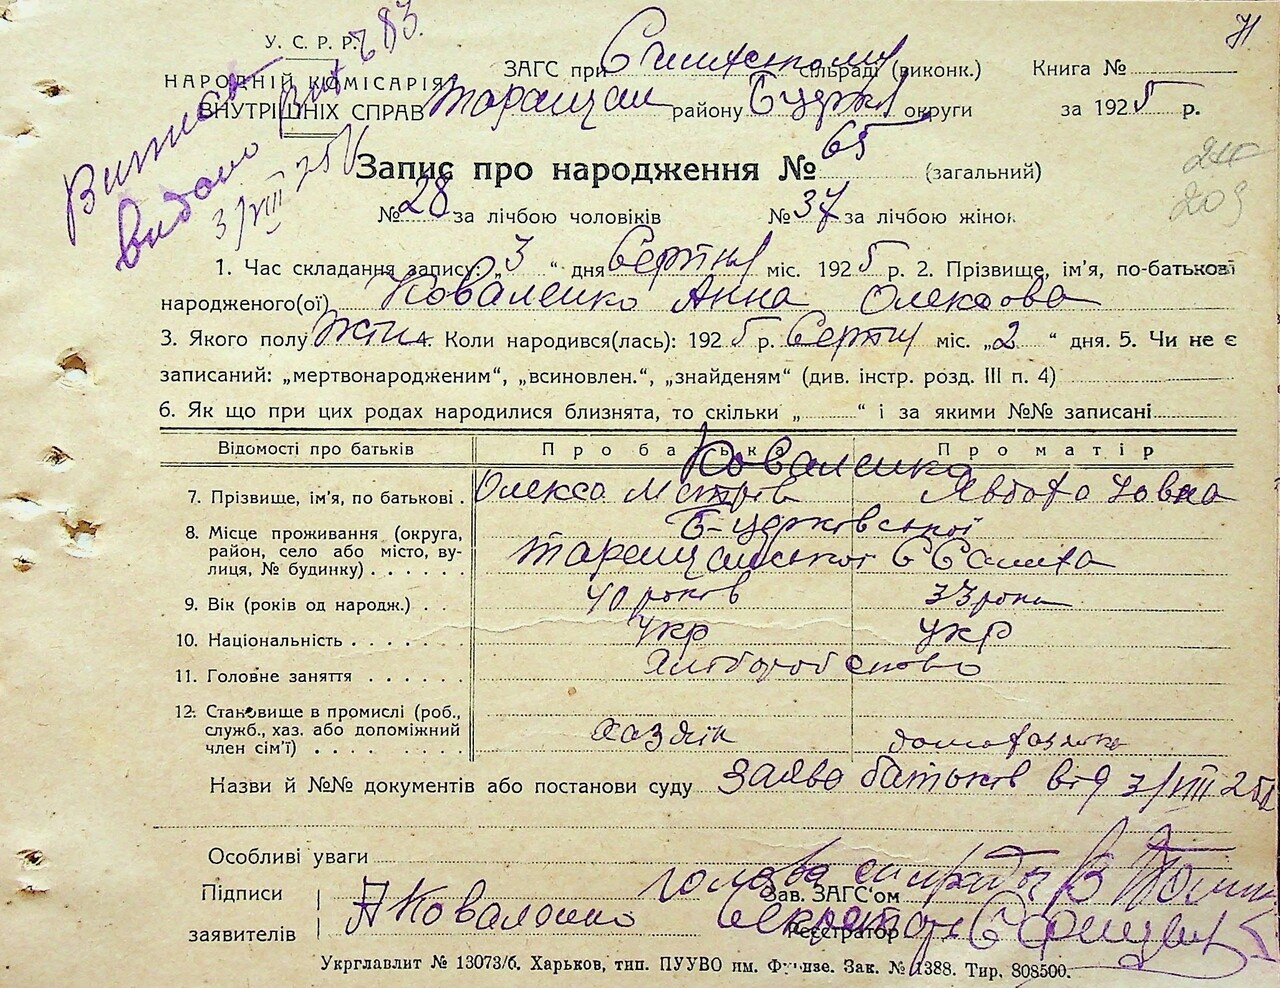 71
У. С. Р. Р.
НАРОДНІЙ КОМІСАРІЯТ
ВНУТРІШНІХ СПРАВ
Виписка
видано
3/VIII 25
ЗАГС при сільраді (виконк.)
Таращан району Б Церкв округи
Книга №
за 1925 р.
Запис про народження № 65 (загальний)
№ 28 за лічбою чоловіків № 37 за лічбою жінок
209
1. Час складання запису: „3“ дня Серпня міс. 1925 р. 2. Прізвище, ім’я, по-батькові
народженого(ої) Коваленко Анна Олексова
3. Якого полу жін 4. Коли народився(лась): 1925 р. Серпня міс. „2“ дня. 5. Чи не є
записаний: „мертвонародженим“, „всиновлен.“, „знайденям“ (див. інстр. розд. III п. 4)
6. Як що при цих родах народилися близнята, то скільки „ “ і за якими №№ записані
Відомості про батьків Про батька Про матір
Коваленко
7. Прізвище, ім’я, по батькові. Олекса Явдоха
8. Місце проживання (округа,
район, село або місто, ву-
лиця, № будинку)
Б-Церковської
Таращанської С
9. Вік (років од народж.) 40 років 33 роки
10. Національність укр укр
11. Головне заняття Хліборобство
12. Становище в промислі (роб.,
служб., хаз. або допоміжний
член сім’ї)
Хазяїн домохазяйка
Назви й №№ документів або постанови суду заява батьків від 3/VIII 25
Особливі уваги
Підписи
заявителів
А Коваленко
голова сільради
Зав. ЗАГС’ом
Секретарь
Реєстратор
Укрглавлит № 13073/б. Харьков, тип. ПУУВО им. Фрунзе. Зак. № 1388. Тир. 808500.